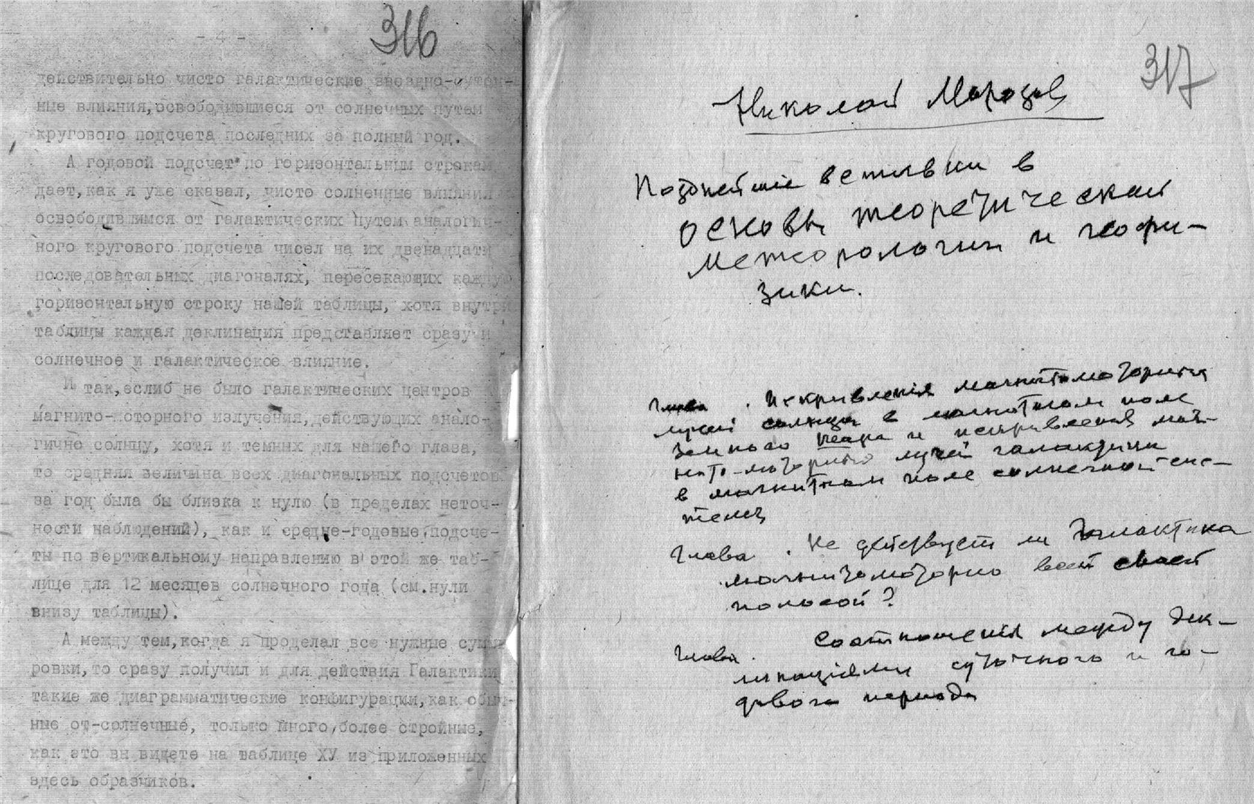 316
действительно чисто галактические звездно-суточ-
ные влияния, освободившиеся от солнечных путем
кругового подсчета последних за полный год.
А годовой подсчет по горизонтальным строкам
дает, как я уже сказал, чисто солнечные влияния
освободившимся от галактических путем аналогич-
ного кругового подсчета чисел на их двенадцати
последовательных диагоналях, пересекающих каждую
горизонтальную строку нашей таблицы, хотя внутри
таблицы каждая деклинация представляет сразу и
солнечное и галактическое влияние.
И так, еслиб не было галактических центров
магнито-моторного излучения, действующих анало-
гично солнцу, хотя и темных для нашего глаза,
то средняя величина всех диагональных подсчетов
за год была бы близка к нулю (в пределах неточ-
ности наблюдений), как и средне-годовые подсче-
ты по вертикальному направлению в этой же таб-
лице для 12 месяцев солнечного года (см. нули
внизу таблицы).
А между тем, когда я проделал все нужные сумми-
ровки, то сразу получил и для действия Галактики
такие же диаграмматические конфигурации, как обыч-
ные от-солнечные, только много более стройные,
как это вы видите на таблице ХУ из приложенных
здесь образчиков.
317
Николай Морозов
Позднейшие вставки в
основы теоретической
метеорологии и геофи-
зики.
Глава . Искривления магнитомоторных
лучей солнца в магнитном поле
земного шара и искривления маг-
нито-моторных лучей галактики
в магнитном поле солнечной сис-
темы
Глава . Не действует ли Галактика
магнитомоторно всей своей
полосой?
Глава . Соотношения между дек-
линациями суточного и го-
дового периода